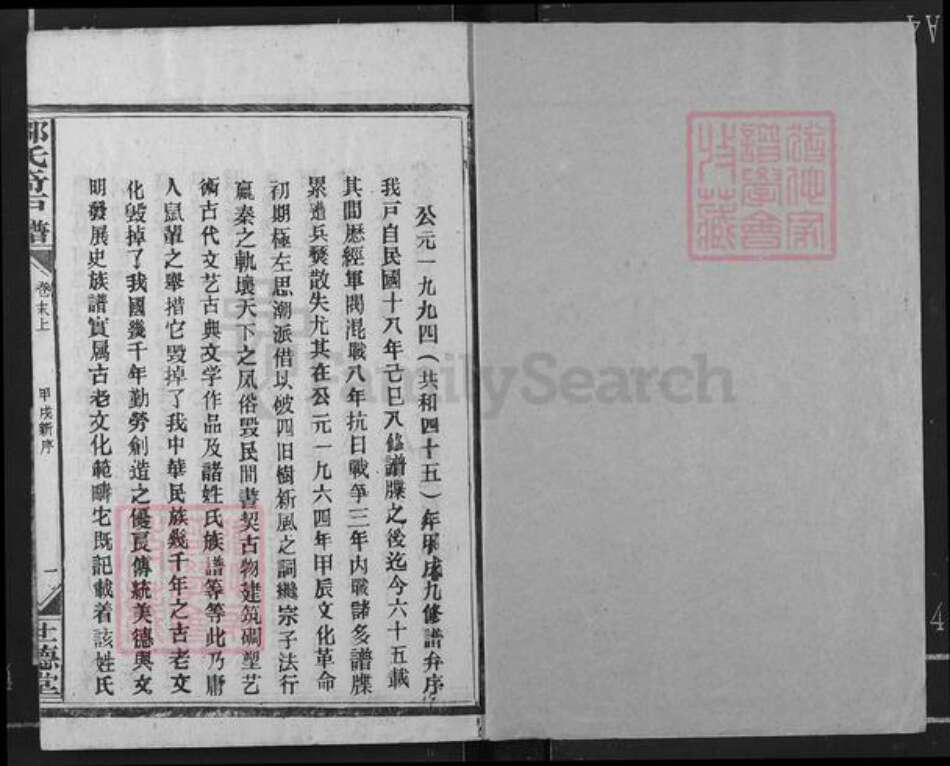 公元一九九四（共和四十五）年甲戌九修譜弁序
我戶自民國十八年己巳八修譜牒之後迄今六十五載
其間歷經軍閥混戰八年抗日戰爭三年內戰諸多譜牒
累遭兵燹散失尤其在公元一九六四年甲辰文化革命
初期極左思潮派借以破四旧樹新風之詞繼宗子法行
嬴秦之軌壞天下之风俗毀民間書契古物建筑碉塑艺
術古代文艺古典文学作品及諸姓氏族譜等等此乃庸
人鼠輩之舉措它毀掉了我中華民族幾千年之古老文
化毀掉了我國幾千年勤勞創造之優良傳統美德與文
明發展史族譜實属古老文化範疇它既記載着該姓氏
氏
戶譜
卷末上
甲戌新序
一
德堂
FamilySearch
譜學會
收藏
A4
4